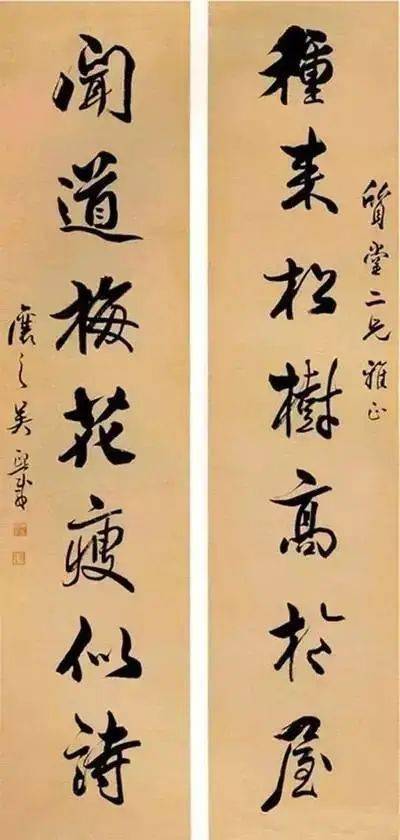 質堂二兄雅正
種来松樹高於屋
聞道梅花瘦似詩
讓之吳熙載